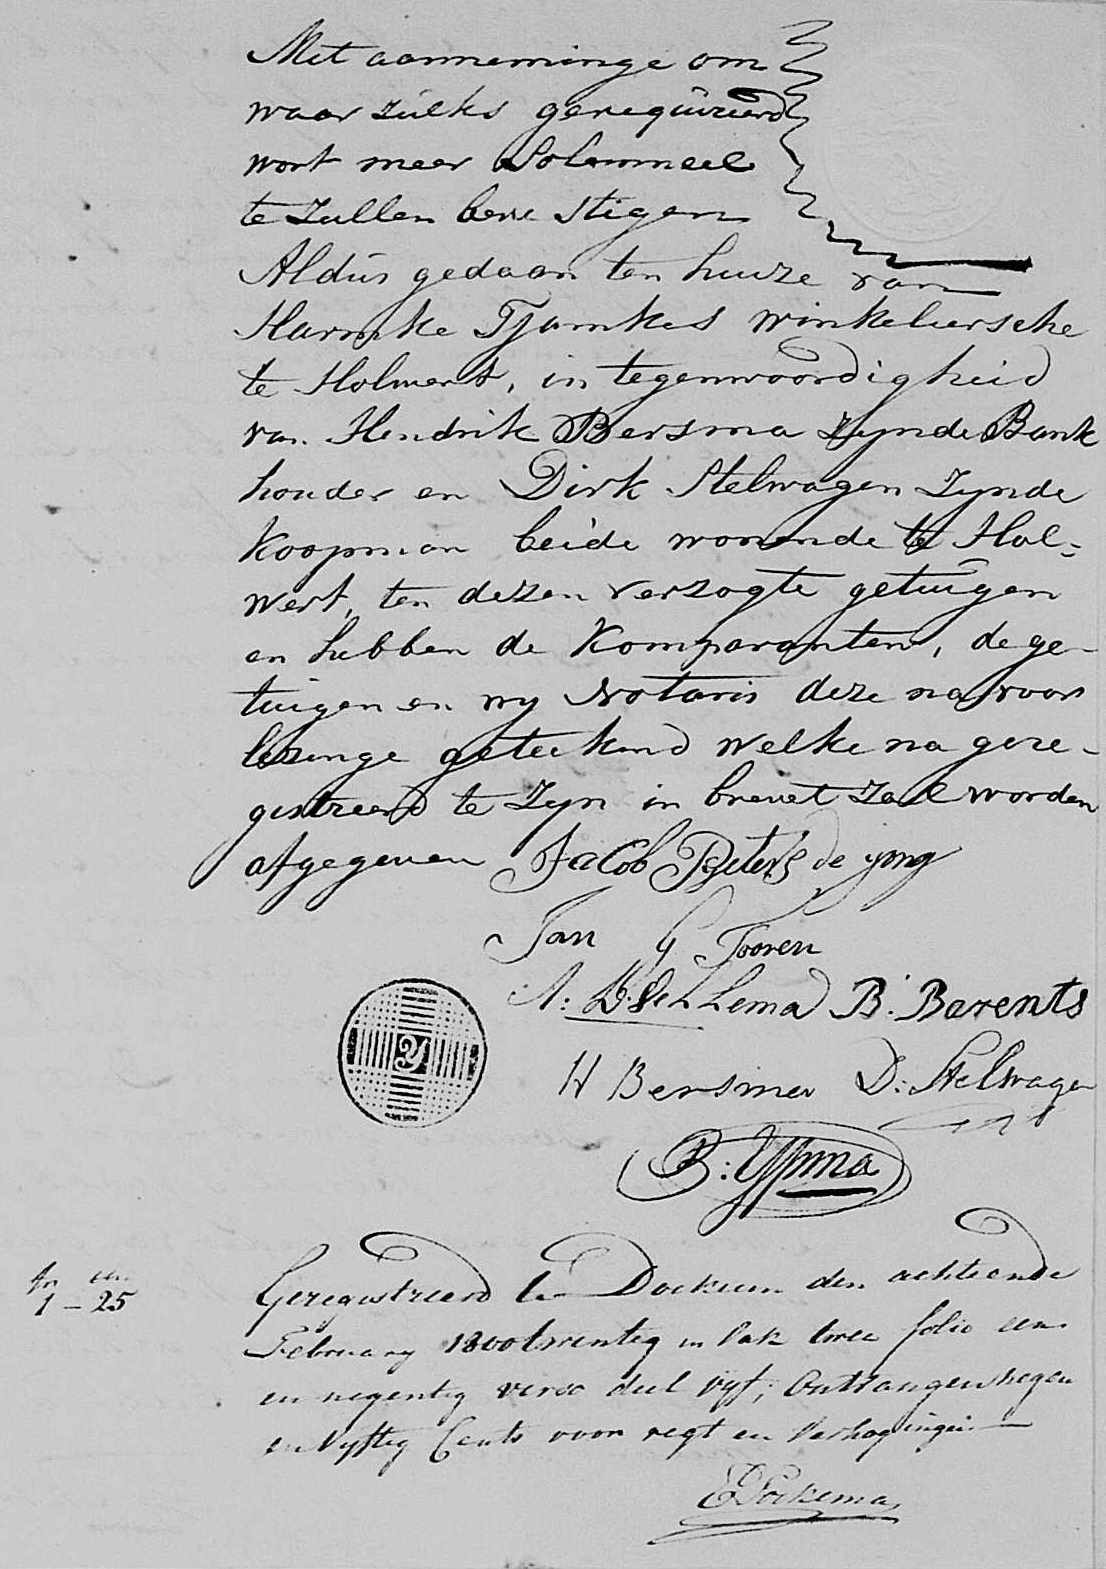 Met aanneminge om
waar zulks gerequireerd
wort meer Solemneel
te zullen beve stigen
Aldus gedaan ten huize van
Harmke Tjamkes winkeliersche
te Holwert, in tegenwoordigheid
van Hendrik Bersma zynde Bank
houder en Dirk Stelwagen zynde
Koopman beide wonende te Hol=
wert, ten dezen verzogte getuigen
en hebben de Komparanten, de ge-
tuigen en my Notaris deze na voor
lezinge geteekend welke na gere-
gistreerd te zyn in brevet zal worden
afgegeven Jacob Pyters de jong
Jan G Tooren
B. Barents
H Bersma D: Stelwagen
B: Ypma
1 - 25
Geregistreerd te Dockum den achtiende
February 1800twentig in Vak twee folio een
en negentig verso deel vyf, Ontvangen negen
en vyftig Cents voor regt en Verhogingen